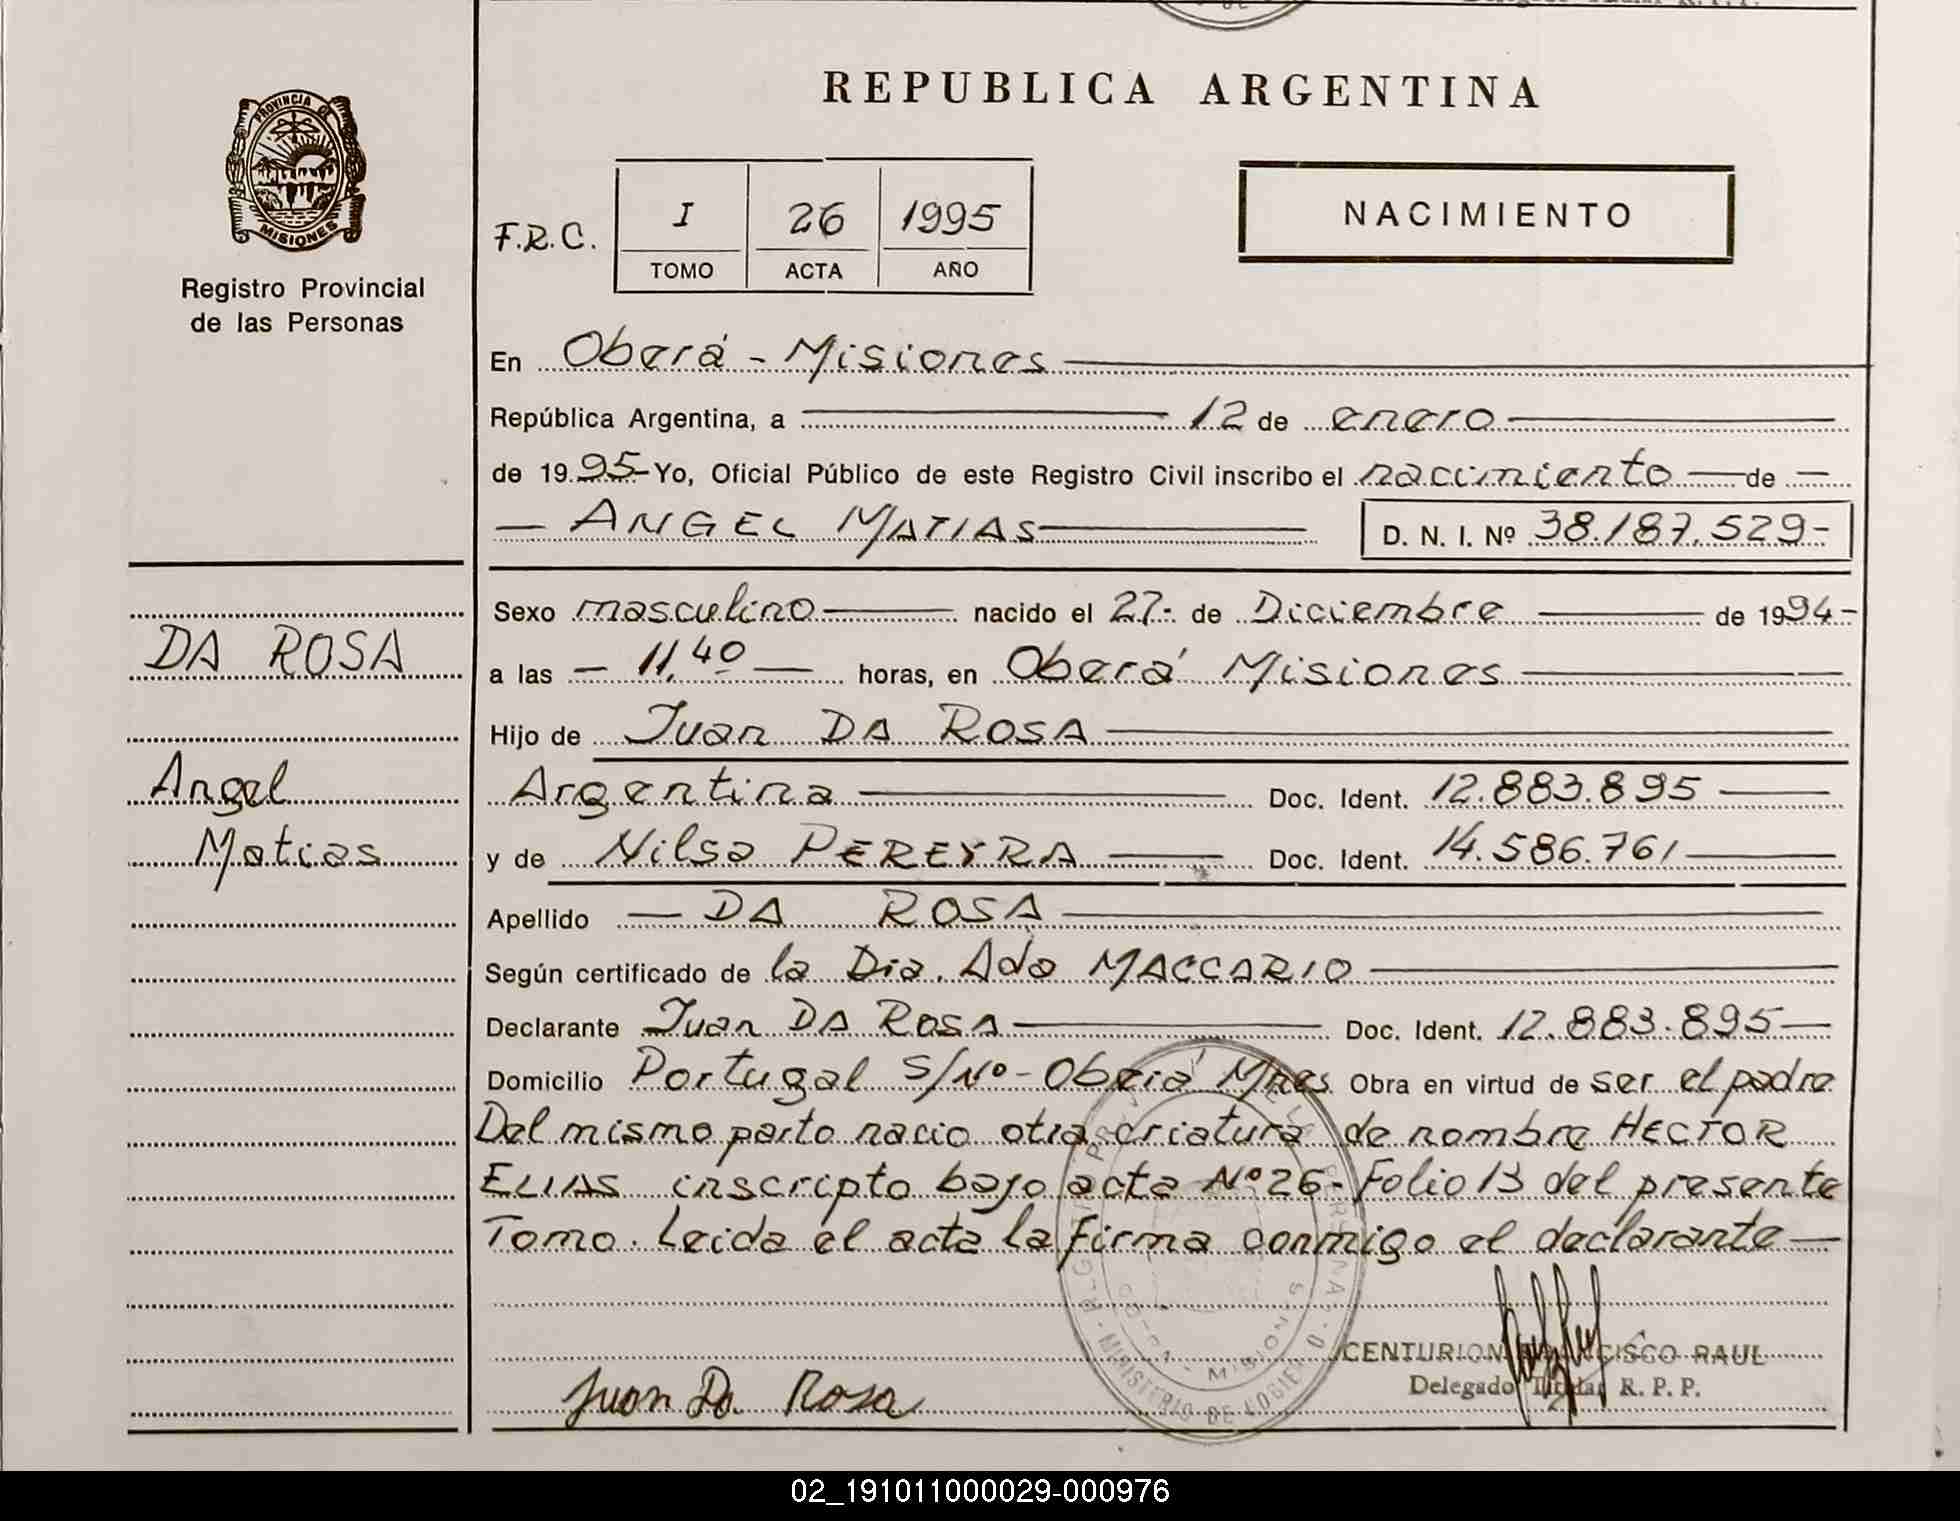 PROVINCIA DE
MISIONES
Registro Provincial
de las Personas
REPUBLICA ARGENTINA
F.R.C. I 26 1995
TOMO ACTA AÑO
NACIMIENTO
En Oberá - Misiones
República Argentina, a 12 de enero
de 19 95- Yo, Oficial Público de este Registro Civil inscribo el nacimiento de
ANGEL MATIAS D. N. I. Nº 38.187.529-
Sexo masculino nacido el 27- de Diciembre de 1994-
a las - 11,40 - horas, en Oberá Misiones
Hijo de Juan DA ROSA
Argentina Doc. Ident. 12.883.895
y de Nilsa PEREYRA Doc. Ident. 14.586.761
Apellido DA ROSA
Según certificado de la Dra. Ada MACCARIO
Declarante Juan DA ROSA Doc. Ident. 12.883.895
Domicilio Portugal S/Nº- Oberá Mnes Obra en virtud de ser el padre
Del mismo parto nacio otra criatura de nombre HECTOR
ELIAS inscripto bajo acta Nº 26- Folio 13 del presente
Tomo. Leida el acta la firma conmigo el declarante
DA ROSA
Angel
Matias
Juan Da Rosa
CENTURION FRANCISCO RAUL
Delegado Titular R. P. P.
MISIONES
MINISTERIO DE
02_191011000029-000976